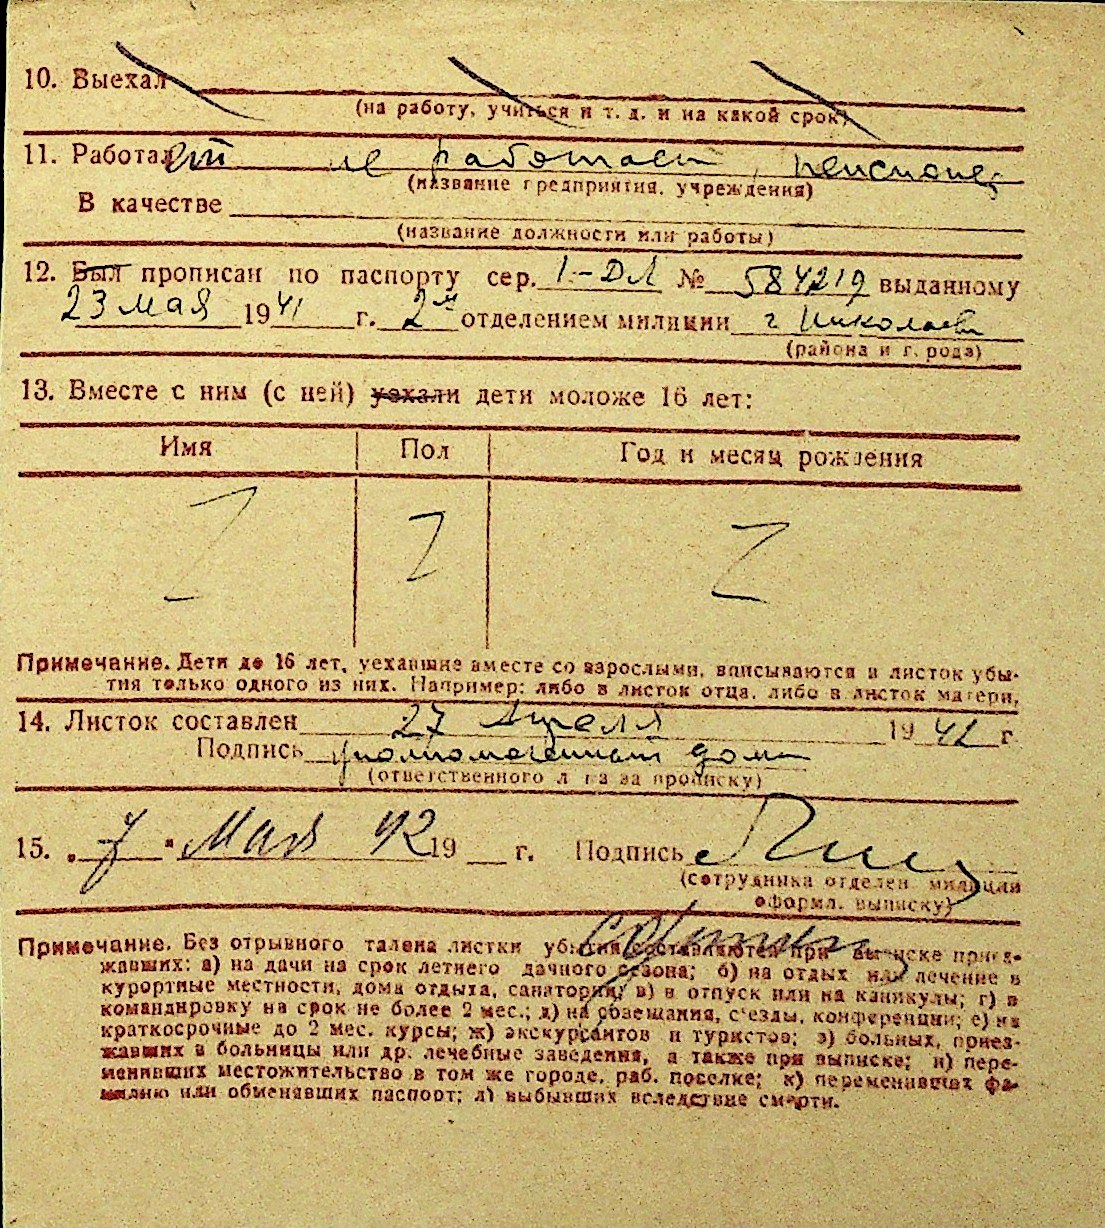 10. Выехал
(на работу, учиться и т. д. и на какой срок)
11. Работает не работает, пенсионер
(название предприятия, учреждения)
В качестве
(название должности или работы)
12. Был прописан по паспорту сер. 1-ДЛ № 584219 выданному
23 мая 1941 г. 2м отделением милиции г Николаев
(района и г. рода)
13. Вместе с ним (с ней) уехали дети моложе 16 лет:
Имя Пол Год и месяц рождения
Z Z Z
Примечание. Дети до 16 лет, уехавшие вместе со взрослыми, вписываются в листок убы-
тия только одного из них. Например: либо в листок отца, либо в листок матери.
14. Листок составлен 27 Апреля 1942 г
Подпись уполномоченный дома
(ответственного л ца за прописку)
15. „7" Мая 42 19 г. Подпись
(сотрудника отделен. милиции
оформл. выписку)
Примечание. Без отрывного талона листки убытия составляются при выписке приез-
жавших: а) на дачи на срок летнего дачного сезона; б) на отдых или лечение в
курортные местности, дома отдыха, санатории; в) в отпуск или на каникулы; г) в
командировку на срок не более 2 мес.; д) на совещания, с'езды, конференции; е) на
краткосрочные до 2 мес. курсы; ж) экскурсантов и туристов; з) больных, приез-
жавших в больницы или др. лечебные заведения, а также при выписке; и) пере-
менивших местожительство в том же городе, раб. поселке; к) переменивших фа-
милию или обменявших паспорт; л) выбывших вследствие смерти.